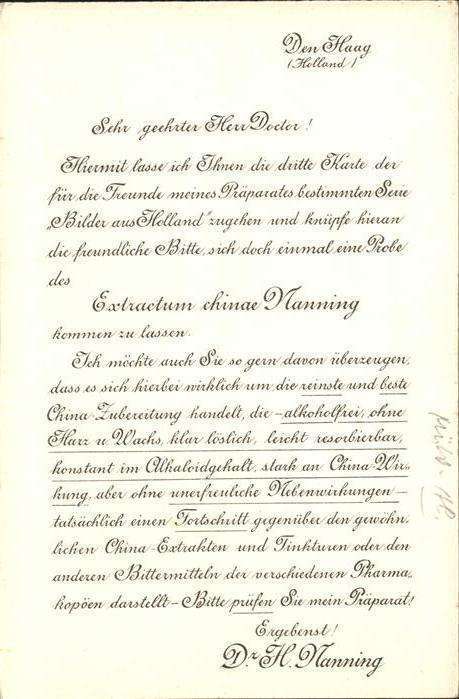 Den Haag
(Holland)
Sehr geehrter Herr Doctor!
Hiermit lasse ich Ihnen die dritte Karte der
für die Freunde meines Präparates bestimmten Serie
„Bilder aus Holland" zugehen und knüpfe hieran
die freundliche Bitte, sich doch einmal eine Probe
des
Extractum chinae Nanning
kommen zu lassen.
Ich möchte auch Sie so gern davon überzeugen,
dass es sich hierbei wirklich um die reinste und beste
China-Zubereitung handelt, die – alkoholfrei, ohne
Harz u. Wachs, klar löslich, leicht resorbierbar,
konstant im Alkaloidgehalt, stark an China-Wir-
kung, aber ohne unerfreuliche Nebenwirkungen –
tatsächlich einen Fortschritt gegenüber den gewöhn-
lichen China-Extrakten und Tinkturen oder den
anderen Bittermitteln der verschiedenen Pharma-
kopöen darstellt – Bitte prüfen Sie mein Präparat!
Ergebenst!
Dr. H. Nanning